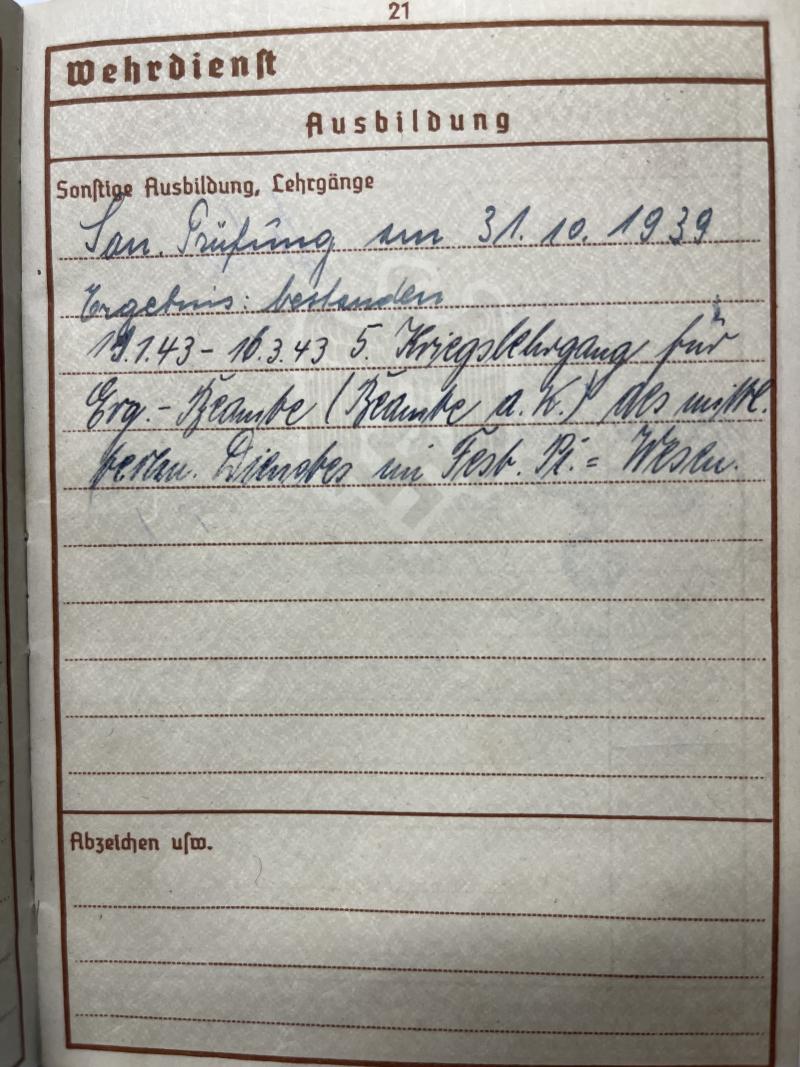 21
Wehrdienst
Ausbildung
Sonstige Ausbildung, Lehrgänge
San. Prüfung am 31. 10. 1939
Ergebnis: bestanden
19.1.43 – 16.3.43 5. Kriegslehrgang für
Erg.- Beamte (Beamte a. K.) des mittl.
techn. Dienstes im Fest. Pi.= Wesen.
Abzeichen usw.